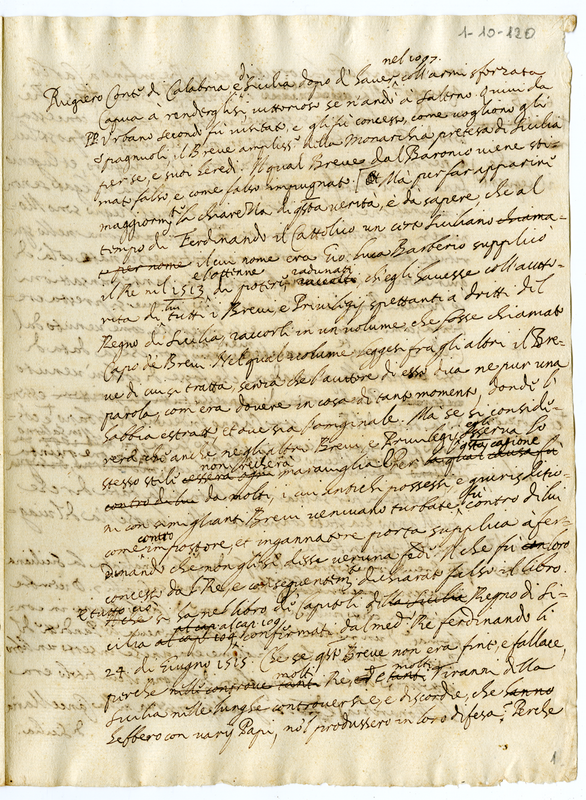 1-10-120
nel 1097.
Rugiero Conte di Calabria e di Sicilia dopo di haver coll'armi sforzata
Capua à rendersi, vittorioso se n'andò à Salerno. Quivi da
PP. Urbano secondo fù visitato, e gli fù concesso, come vogliono gli
Spagnuoli, il Breve ampliss.o della Monarchia pretesa di Sicilia
per se, e suoi heredi. Il qual Breve dal Baronio viene sti-
mato falso e come falso impugnato. Mà per far apparire
maggiorm.te la chiarezza di q.sta verità, è da sapere, che al
tempo di Ferdinando il Cattolico un certo Siciliano chiama-
to per nome il cui nome era Gio. Luca Barberio supplicò
e l'ottenne radunati
il Rè nel 1513 di poter raccolti, ch'egli havesse coll'autto-
rità di lui tutti i Brevi, e Privilegi spettanti a dritti del
Regno di Sicilia, raccorli in un volume, che fosse chiamato
Capo de Brevi. Nel qual volume leggesi fra gli altri il Bre-
ve di cui si tratta, senza che l'autore di esso dica ne pur una
parola, com'era dovere in cosa di tanto momento, donde l'
habbia estratto, et ove sia l'originale. Ma se si conside-
rerà che anche negli altri Brevi, e Privilegi egli osserva lo
stesso stile non recherà maraviglia. Per q.sta cagione la qual causa fù
contro di lui da molti, i cui antichi possessi, e giurisditio-
ni con simiglianti Brevi venivano turbate, fù contro di lui
come contro impostore, et ingannatore porta supplica à Fer-
dinando che non gli si desse veruna fede. Il che fù
concesso dal Rè, e conseguentem.te dichiarato falso il libro.
E tutto ciò si hà nel libro di Capitoli della Sicilia Regno di Si-
cilia al cap. 109 confirmati dal med.o Rè Ferdinando li
24 di Giugno 1515. Che se q.sto Breve non era finto, e fallace,
perche molti Rè, e molti Tiranni della
Sicilia nelle lunghe controversie, e discordie, che hanno
hebbero con varij Papi, no'l produssero in loro difesa? Perche
1